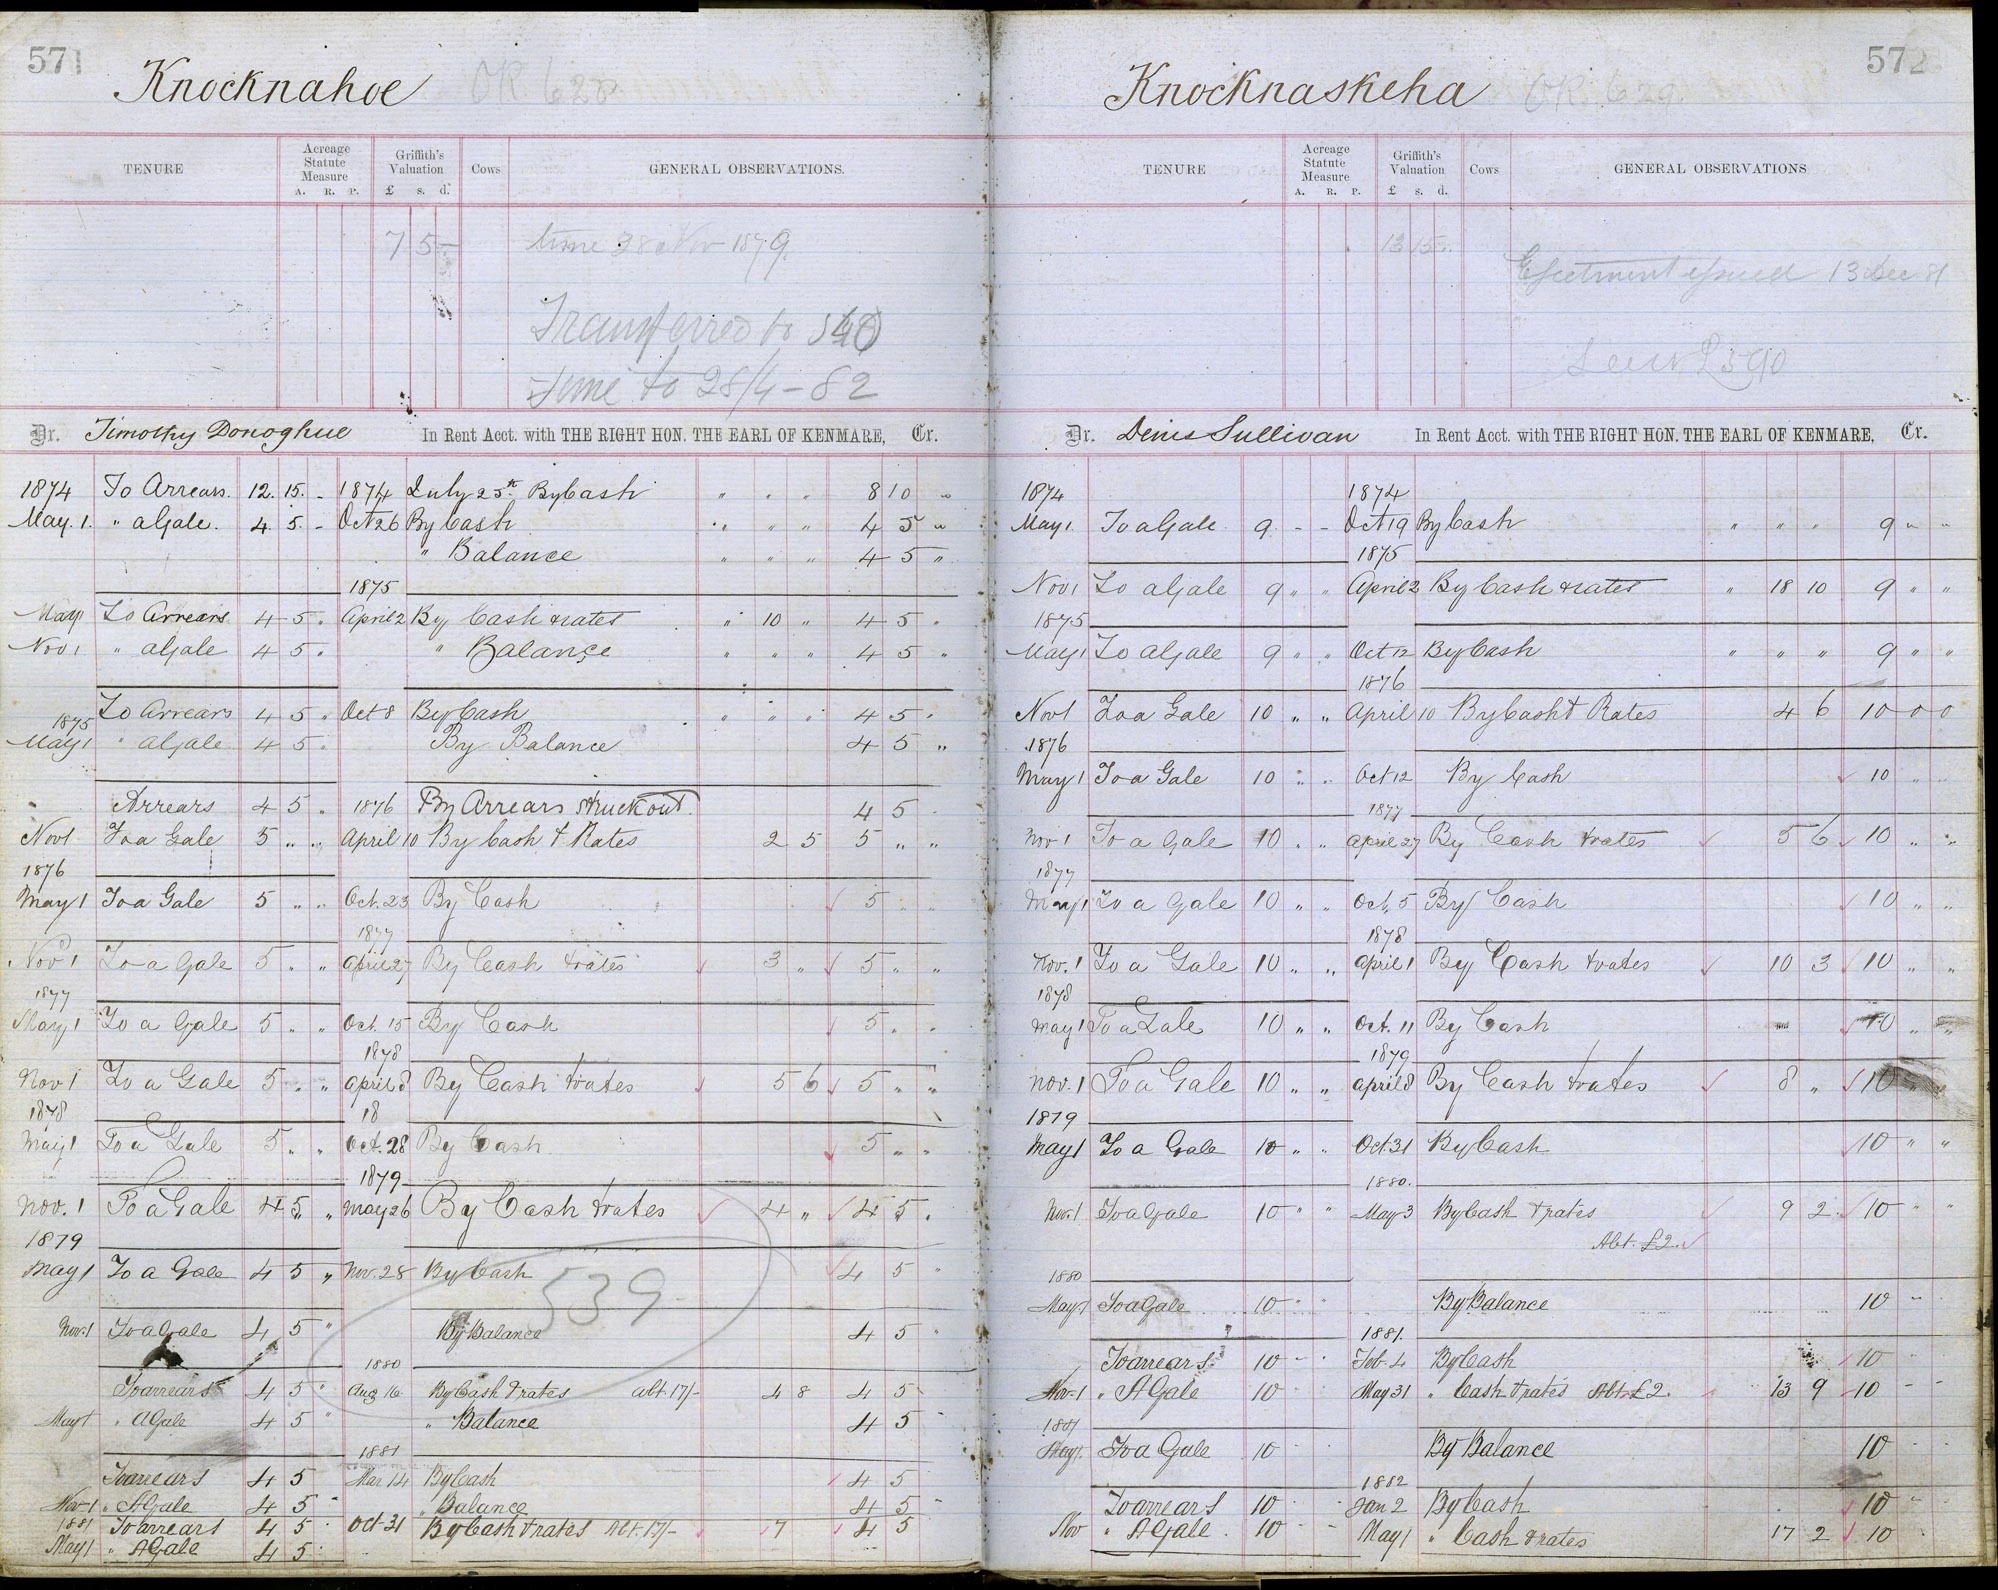 571
Knocknahoe OR 628
TENURE
Acreage Statute Measure
A. R. P.
Griffith's Valuation
£ s. d.
Cows
GENERAL OBSERVATIONS.
7 5 -
time 28 Nov 1879.
Transferred to 540
Time to 28/4-82
Dr. Timothy Donoghue In Rent Acct. with THE RIGHT HON. THE EARL OF KENMARE, Cr.
1874 To Arrears. 12. 15. - 1874 July 25th By Cash " " " 8 10 "
May. 1. " a Gale. 4. 5. - Oct 26 By Cash " " " 4 5 "
" Balance " " " 4 5 "
1875
May 1 To Arrears 4 5 " April 2 By Cash & rates " 10 " 4 5 "
Nov 1 " a Gale 4 5 " " Balance " " " 4 5 "
To Arrears 4 5 " Oct 8 By Cash " " " 4 5 "
1875
May 1 " a Gale 4 5 " By Balance 4 5 "
Arrears 4 5 " 1876 By Arrears struck out. 4 5
Nov 1 To a Gale 5 " " April 10 By Cash & Rates 2 5 5 " "
1876
May 1 To a Gale 5 " " Oct. 23 By Cash 5 " "
1877
Nov 1 To a Gale 5 " " April 27 By Cash & rates 3 " 5 " "
1877
May 1 To a Gale 5 " " Oct. 15 By Cash 5 " "
1878
Nov 1 To a Gale 5 " " April 8 By Cash & rates 5 6 5 " "
1878 18
May 1 To a Gale 5 " " Oct. 28 By Cash 5 " "
1879
Nov. 1 To a Gale 4 5 " May 26 By Cash & rates 4 " 4 5 "
1879
May 1 To a Gale 4 5 " Nov. 28 By Cash 4 5 "
539
Nov. 1 To a Gale 4 5 " By Balance 4 5 "
1880
To arrears 4 5 " Aug 16 By Cash & rates abt. 17/- 4 8 4 5 -
May 1 " A Gale 4 5 " " Balance 4 5 -
1881
To arrears 4 5 Mar 14 By Cash 4 5
Nov. 1 " A Gale 4 5 - " Balance 4 5 -
1881 To arrears 4 5 Oct 31 By Cash & rates Abt. 17/- 7 4 5
May 1 " A Gale 4 5
572
Knocknaskeha OR. 629.
TENURE
Acreage Statute Measure
A. R. P.
Griffith's Valuation
£ s. d.
Cows
GENERAL OBSERVATIONS
13 15 -
Ejectment issued 13 Dec 81
Dr. Denis Sullivan In Rent Acct. with THE RIGHT HON. THE EARL OF KENMARE, Cr.
1874 1874
May 1. To a Gale 9 - - Oct 19 By Cash " " " 9 " "
1875
Nov 1 To a Gale 9 " " April 2 By Cash & rates " 18 10 9 " "
1875
May 1 To a Gale 9 " " Oct 12 By Cash " " " 9 " "
1876
Nov 1 To a Gale 10 " " April 10 By Cash & Rates 4 6 10 0 0
1876
May 1 To a Gale 10 " " Oct 12 By Cash 10 " "
1877
Nov 1 To a Gale 10 " " April 27 By Cash & rates 5 6 10 " "
1877
May 1 To a Gale 10 " " Oct. 5 By Cash 10 " "
1878
Nov. 1 To a Gale 10 " " April 1 By Cash & rates 10 3 10 " "
1878
May 1 To a Gale 10 " " Oct. 11 By Cash 10 " "
1879
Nov. 1 To a Gale 10 " " April 8 By Cash & rates 8 " 10 " "
1879
May 1 To a Gale 10 " " Oct. 31 By Cash 10 " "
1880.
Nov. 1 To a Gale 10 " " May 3 By Cash & rates 9 2 10 " "
Abt. £2.
1880
May 1 To a Gale 10 " " By Balance 10 - -
1881.
To arrears 10 - - Feb. 4 By Cash 10 -
Nov. 1 " A Gale 10 May 31 " Cash & rates Abt. £2. 13 9 10 - -
1881
May 1. To a Gale 10 - - By Balance 10 - -
1882
To arrears 10 - - Jan 2 By Cash 10 - -
Nov " A Gale 10 - - May 1 " Cash & rates 17 2 10 -